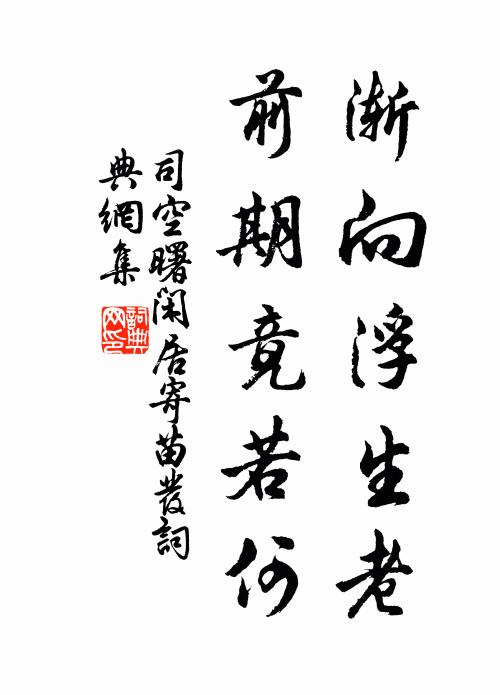 渐向浮生老
前期竟若何
司空曙闲居寄苗發詞
典網集
詞典
网印